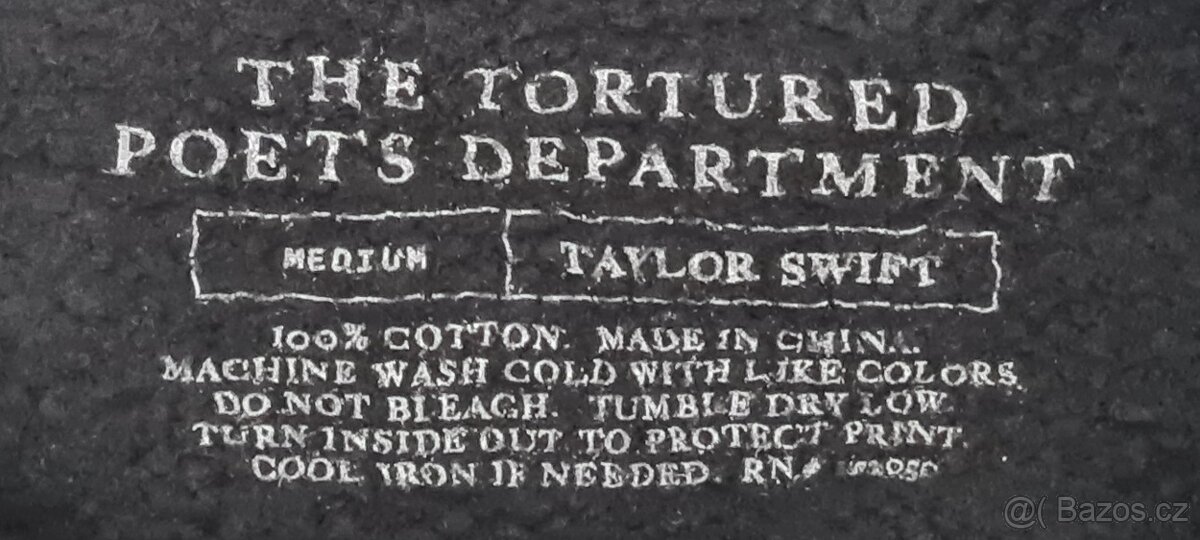 THE TORTURED
POETS DEPARTMENT
MEDIUM
TAYLOR SWIFT
100% COTTON. MADE IN CHINA.
MACHINE WASH COLD WITH LIKE COLORS.
DO NOT BLEACH. TUMBLE DRY LOW.
TURN INSIDE OUT TO PROTECT PRINT.
COOL IRON IF NEEDED. RN#
@( Bazos.cz